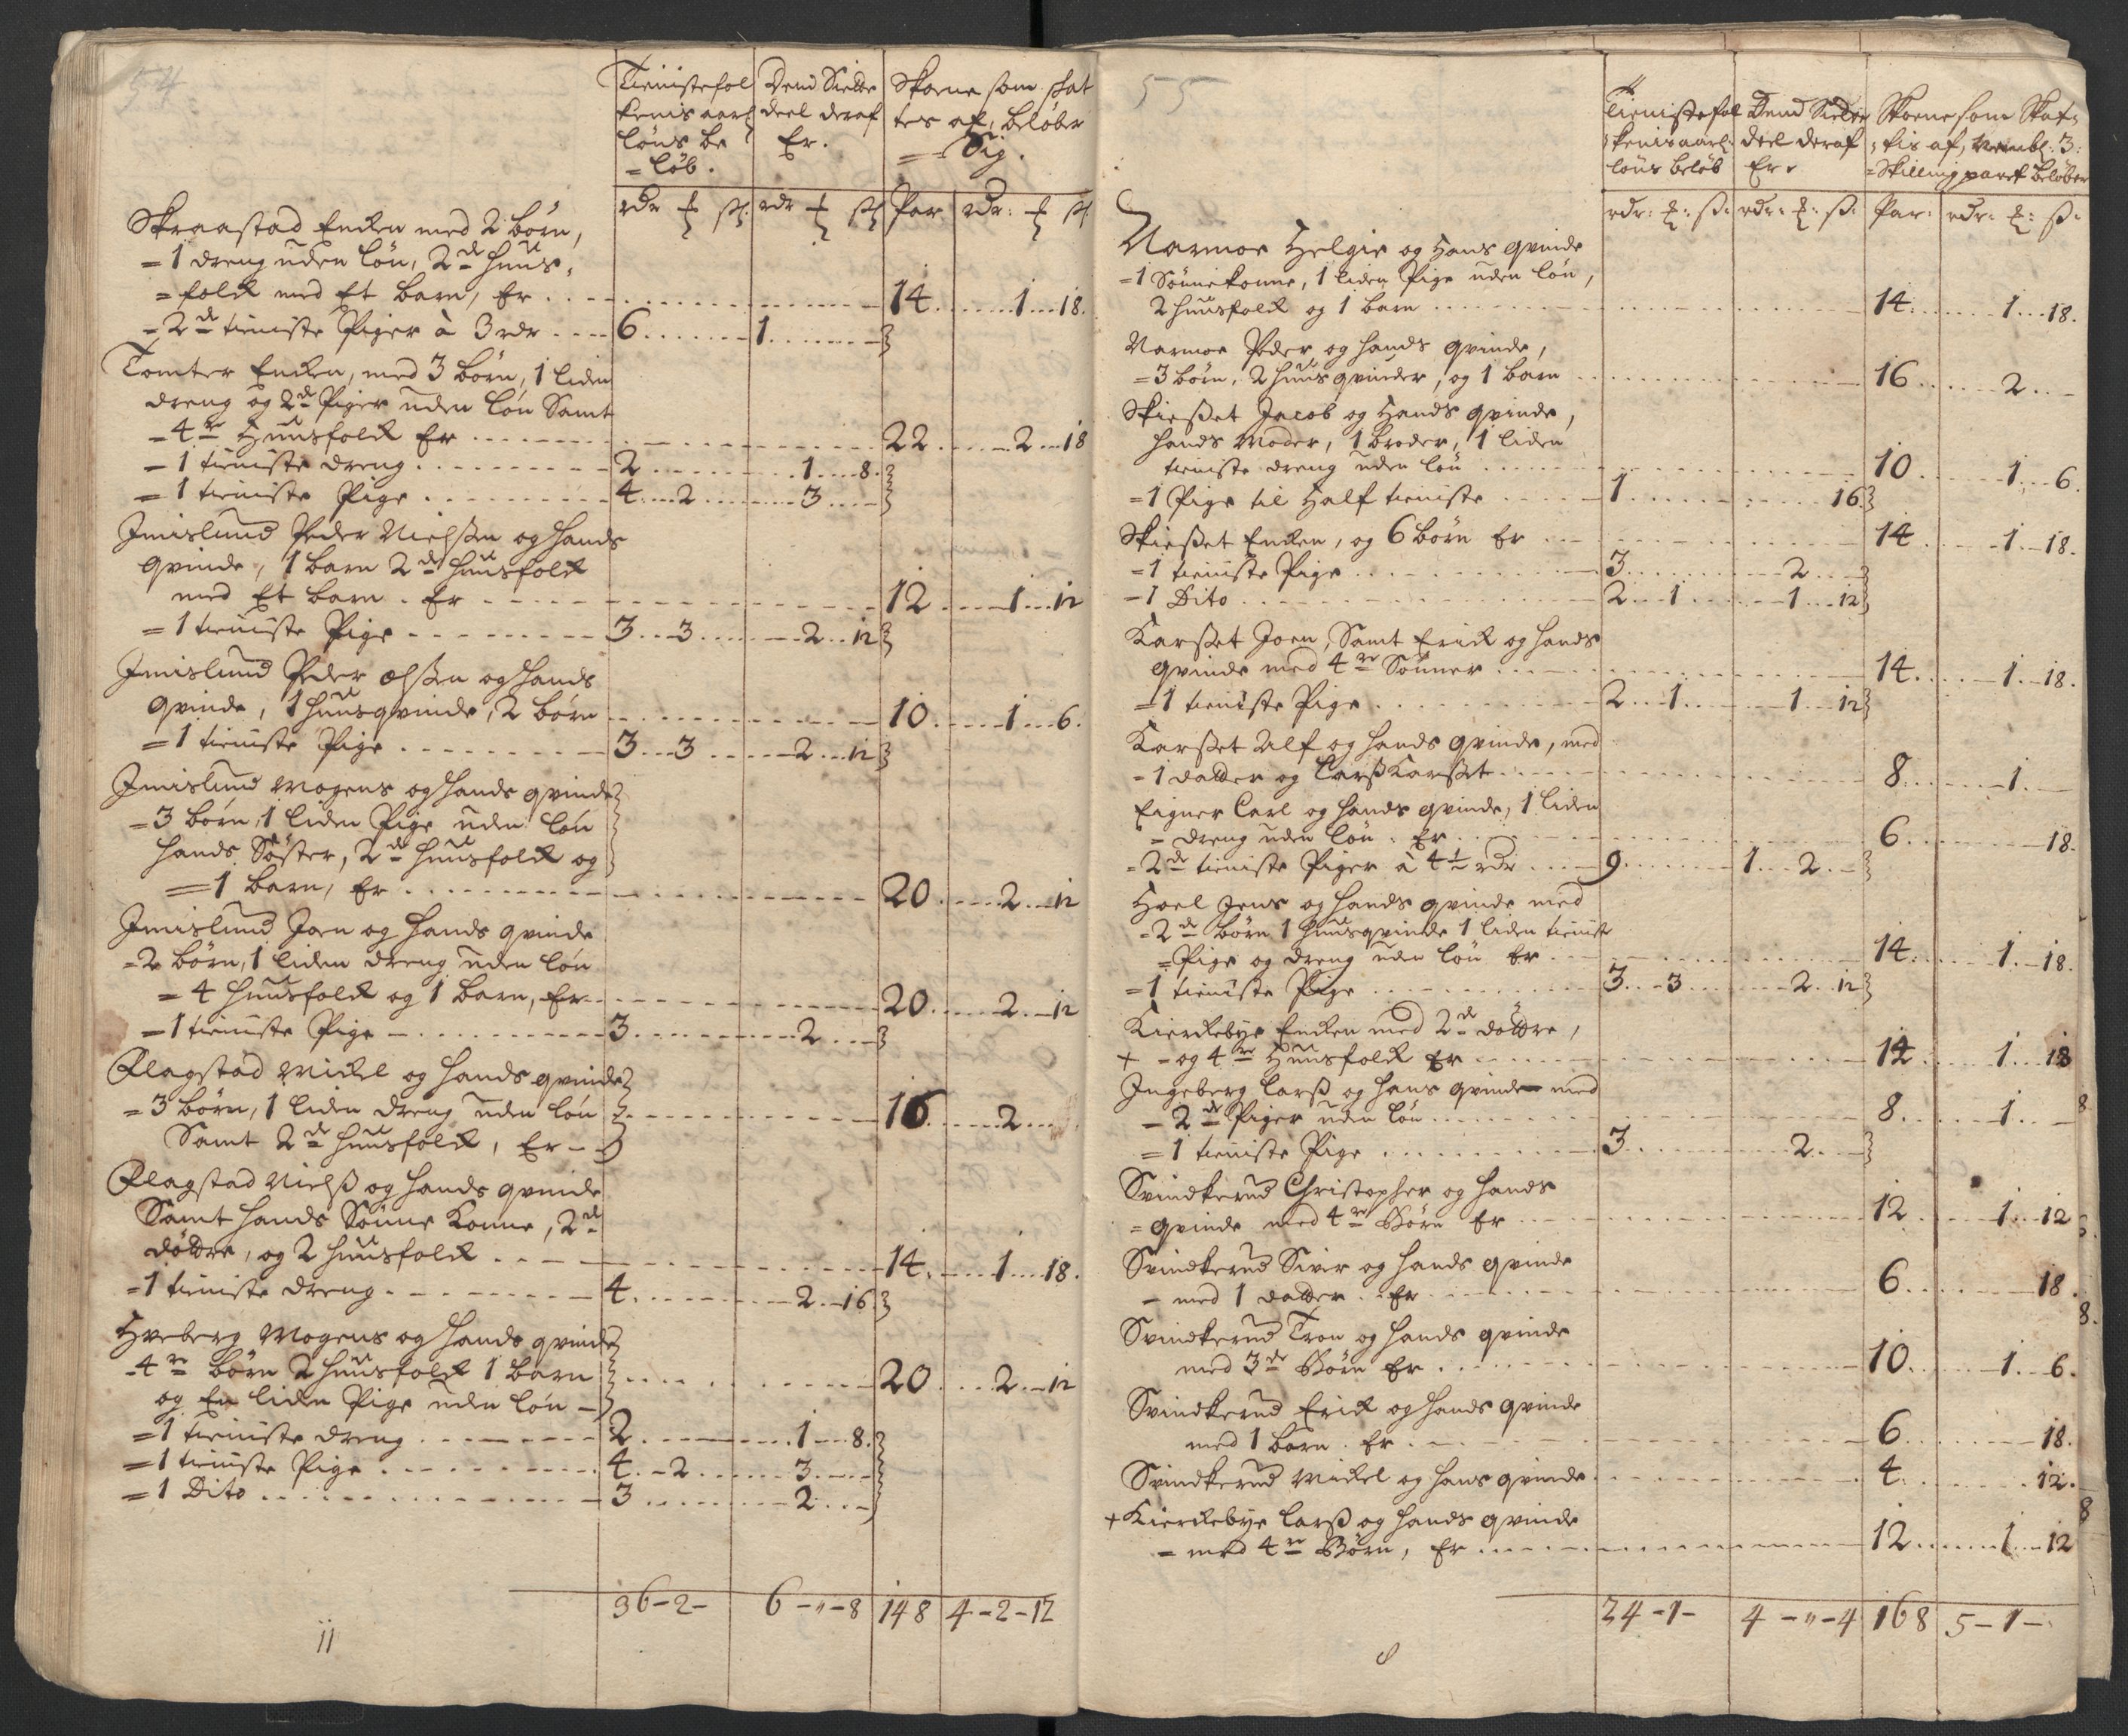 54
Tieniste fol
kenis aarl
löns be
= löb.
Dend Siette
deel deraf
Er.
Skoene som skat
tes af, beløber
== Sig.
rdr ort sk. rdr ort sk Par rdr: ort sk
Skraastad Encken med 2 börn,
= 1 dreng uden lön, 2de huus,
= folck med Et barn, Er . . . 14 . . . 1 . . 18.
= 2de tieniste Piger à 3 rdr . . . 6 . . . 1 . . .
Tomter Encken, med 3 börn, 1 liden
dreng og 2de Piger uden lön Samt
= 4re Huusfolck Er . . . 22 . . . 2 . . 18
= 1 tieniste dreng . . . 2 . . . 1 . . 8.
= 1 tieniste Pige . . . 4 . . 2 . . . 3 . .
Imislund Peder Nielssen og hands
qvinde, 1 barn 2de huusfolck
med Et barn . Er . . . 12 . . . 1 . . 12
= 1 tieniste Pige . . . 3 . . 3 . . . 2 . . 12
Imislund Peder Olssen og hands
qvinde, 1 huusqvinde, 2 börn . . . 10 . . . 1 . . 6.
= 1 tieniste Pige . . . 3 . . 3 . . . 2 . . 12
Imislund Mogens og hands qvinde
= 3 börn, 1 liden Pige uden lön
hands Söster, 2de huusfolck og
= 1 barn, Er . . . 20 . . . 2 . . 12
Imislund Joen og hands qvinde
= 2 börn, 1 liden dreng uden lön
= 4 huusfolck og 1 barn, Er . . . 20 . . . 2 . . 12
= 1 tieniste Pige . . . 3 . . . 2 . .
Flagstad Mickel og hands qvinde
= 3 börn, 1 liden dreng uden lön . . . 16 . . . 2 . .
Samt 2de huusfolck, Er
Flagstad Nielss og hands qvinde
Samt hands Sönne Konne, 2de
döttre, og 2 huusfolck . . . 14 . . . 1 . . 18.
= 1 tieniste dreng . . . 4 . . . 2 . . 16
Hveberg Mogens og hands qvinde
= 4re börn 2 huusfolck 1 barn . . . 20 . . . 2 . . 12
og En liden Pige uden lön
= 1 tieniste dreng . . . 2 . . . 1 . . 8.
= 1 tieniste Pige . . . 4 . . 2 . . . 3 . .
= 1 Dito . . . 3 . . . 2 . .
36-2- 6-"-8 148 4-2-12
11
55
Tieniste fol
kenis aarl:
löns beløb
Dend Siette
deel deraf
Er.
Skoene som Skat=
tis af, 3:
= Skilling paret beløber
rdr: ort: sk: rdr: ort: sk: Par: rdr: ort: sk.
Narmoe Helgie og Hans qvinde
= 1 Sönnekonne, 1 liden Pige uden lön,
2 huusfolck og 1 barn . . . 14 . . . 1 . . 18.
Narmoe Peder og hands qvinde,
= 3 börn, 2 huusqvinder, og 1 barn . . . 16 . . . 2 . .
Skiesset Jacob og Hands qvinde,
hands Moder, 1 broder, 1 liden
tieniste dreng uden lön . . . 10 . . . 1 . . 6.
= 1 Pige til Half tieniste . . . 1 . . . 16
Skiesset Encken, og 6 börn Er . . . 14 . . . 1 . . 18.
= 1 tieniste Pige . . . 3 . . . 2 . .
= 1 Dito . . . 2 . . 1 . . . 1 . . 12
Karsset Joen, Samt Erick og hands
qvinde med 4re Sönner . . . 14 . . . 1 . . 18.
= 1 tieniste Pige . . . 2 . . 1 . . . 1 . . 12
Karsset Alf og hands qvinde, med
= 1 datter og Larss Karsset . . . 8 . . . 1 . .
Eigner Carl og hands qvinde, 1 liden
= dreng uden lön . Er . . . 6 . . . 18.
= 2de tieniste Piger à 4½ rdr . . . 9 . . . 1 . . 2 . .
Hoel Jens og hands qvinde med
= 2de börn 1 huusqvinde 1 liden tieniste
= Pige og dreng uden lön Er . . . 14 . . . 1 . . 18.
= 1 tieniste Pige . . . 3 . . 3 . . . 2 . . 12
Kierckebye Encken med 2de döttre,
+ = og 4re Huusfolck Er . . . 14 . . . 1 . . 18
Ingeberg Larss og hans qvinde med
= 2de Piger uden lön . . . 8 . . . 1 . .
= 1 tieniste Pige . . . 3 . . . 2 . .
Svindkerud Christopher og hands
= qvinde med 4re Börn Er . . . 12 . . . 1 . . 12
Svindkerud Siver og hands qvinde
= med 1 datter . Er . . . 6 . . . 18.
Svindkerud Tron og hands qvinde
med 3de Börn Er . . . 10 . . . 1 . . 6.
Svindkerud Erick og hands qvinde
med 1 barn . Er . . . 6 . . . 18.
Svindkerud Mickel og hans qvinde . . . 4 . . . 12.
+ Kierckebye Larss og hands qvinde
= med 4re Börn, Er . . . 12 . . . 1 . . 12
24-1- 4-"-4 168 5-1-